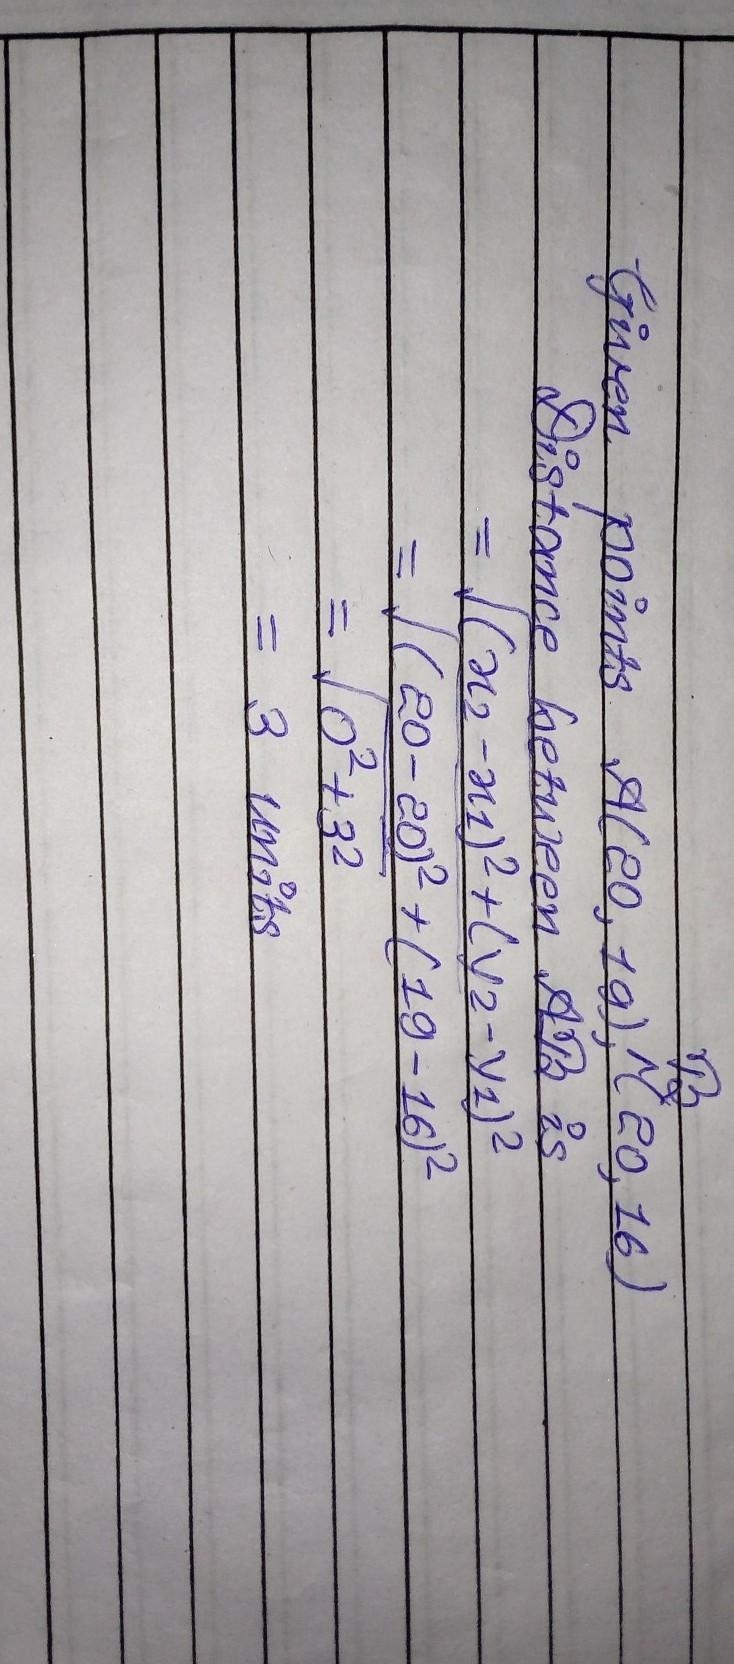 B
Given points A(20, 19), (20, 16)
Distance between AB is
= √(x2 - x1)² + (y2 - y1)²
= √(20 - 20)² + (19 - 16)²
= √0² + 3²
= 3 units